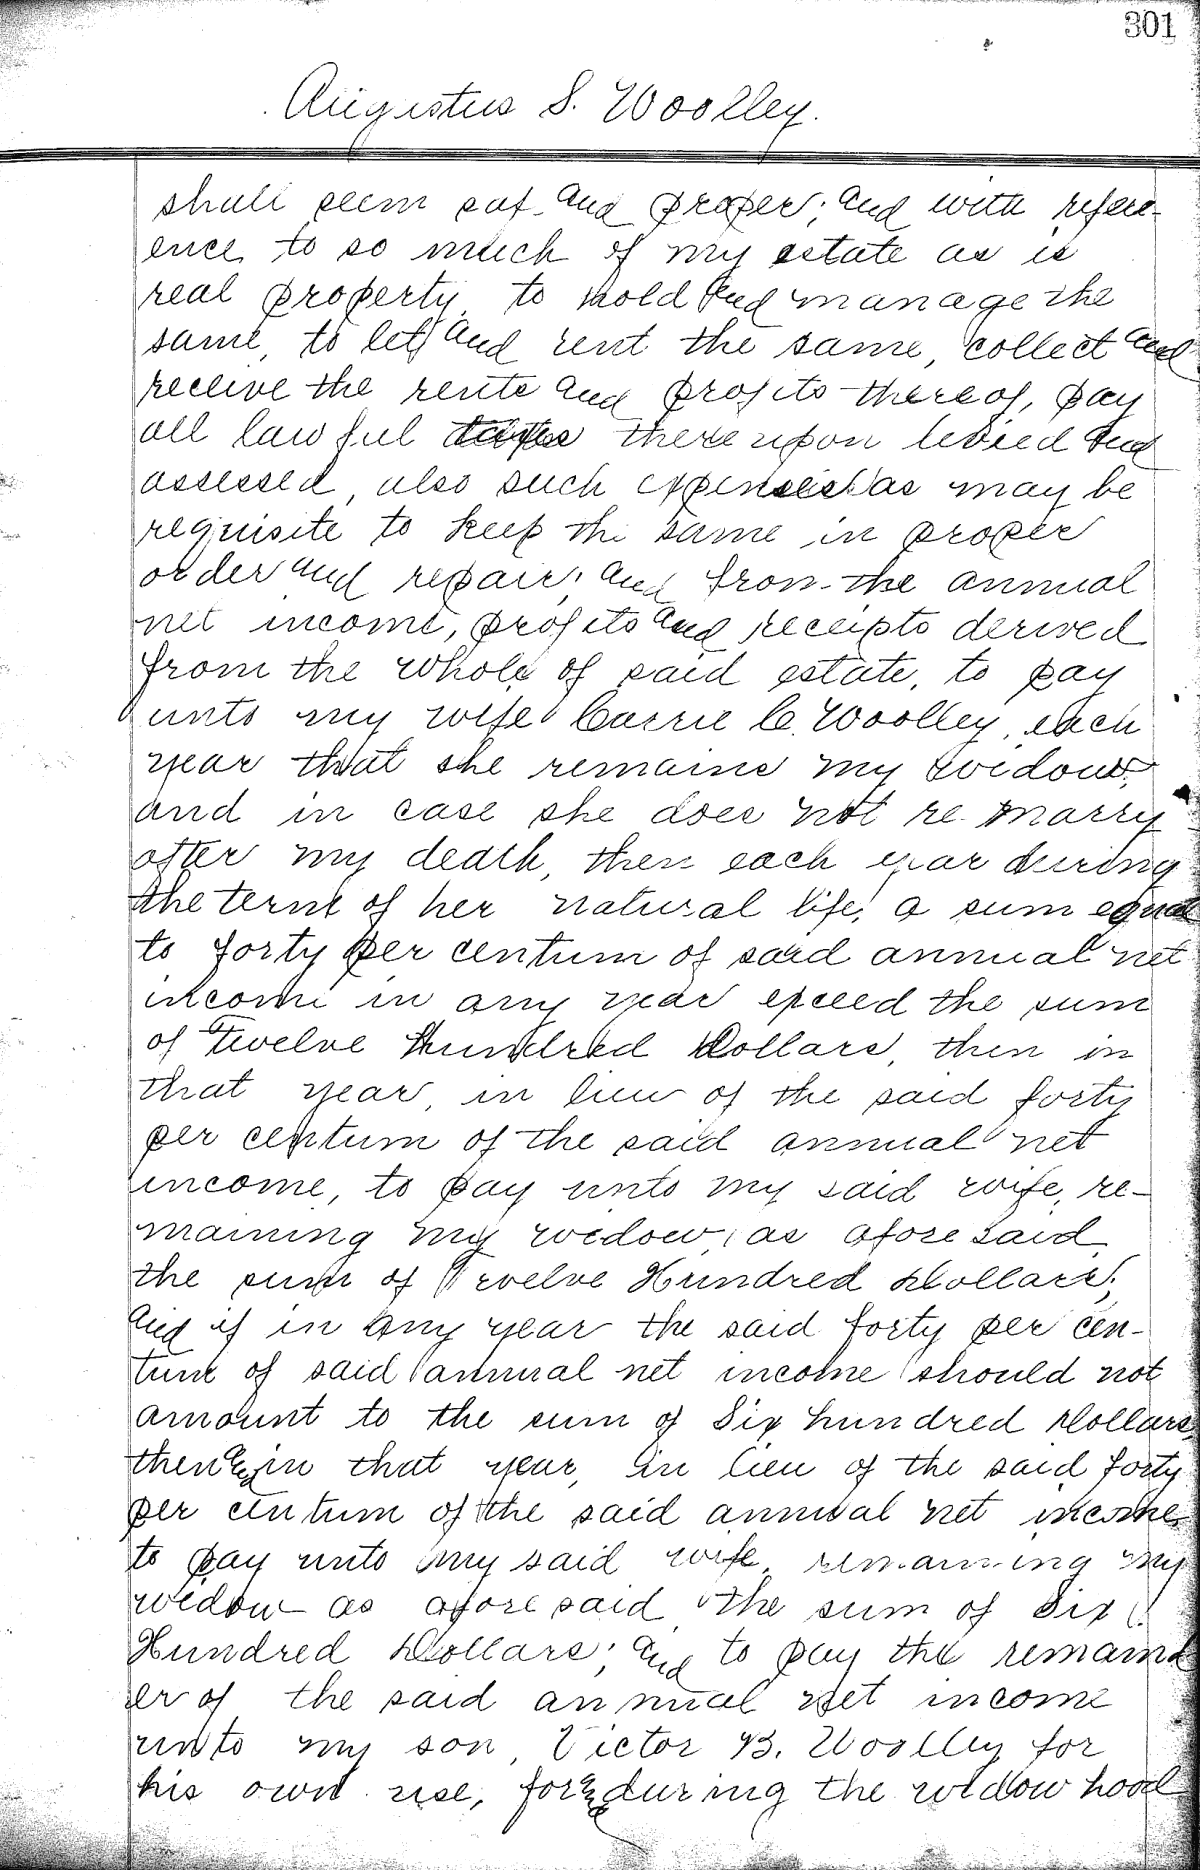 301
Augustus S. Woolley.
shall seem saf and proper; and with refer-
ence to so much of my estate as is
real property to hold and manage the
same, to let and rent the same, collect and
receive the rents and profits thereof, pay
all lawful taxes thereupon levied and
assessed, also such expenses as may be
requisite to keep the same in proper
order and repair; and from the annual
net income, profits and receipts derived
from the whole of said estate, to pay
unto my wife Carrie C. Woolley, each
year that she remains my widow,
and in case she does not re-marry
after my death, then each year during
the term of her natural life, a sum equal
to forty per centum of said annual net
income in any year exceed the sum
of Twelve Hundred Dollars, then in
that year, in lieu of the said forty
per centum of the said annual net
income, to pay unto my said wife, re-
maining my widow, as aforesaid,
the sum of Twelve Hundred Dollars;
and if in any year the said forty per cen-
tum of said annual net income should not
amount to the sum of Six hundred Dollars,
then and in that year, in lieu of the said forty
per centum of the said annual net income
to pay unto my said wife, remaining my
widow as aforesaid the sum of Six
Hundred Dollars; and to pay the remaind
er of the said annual net income
unto my son, Victor B. Woolley for
his own use, for & during the widowhood